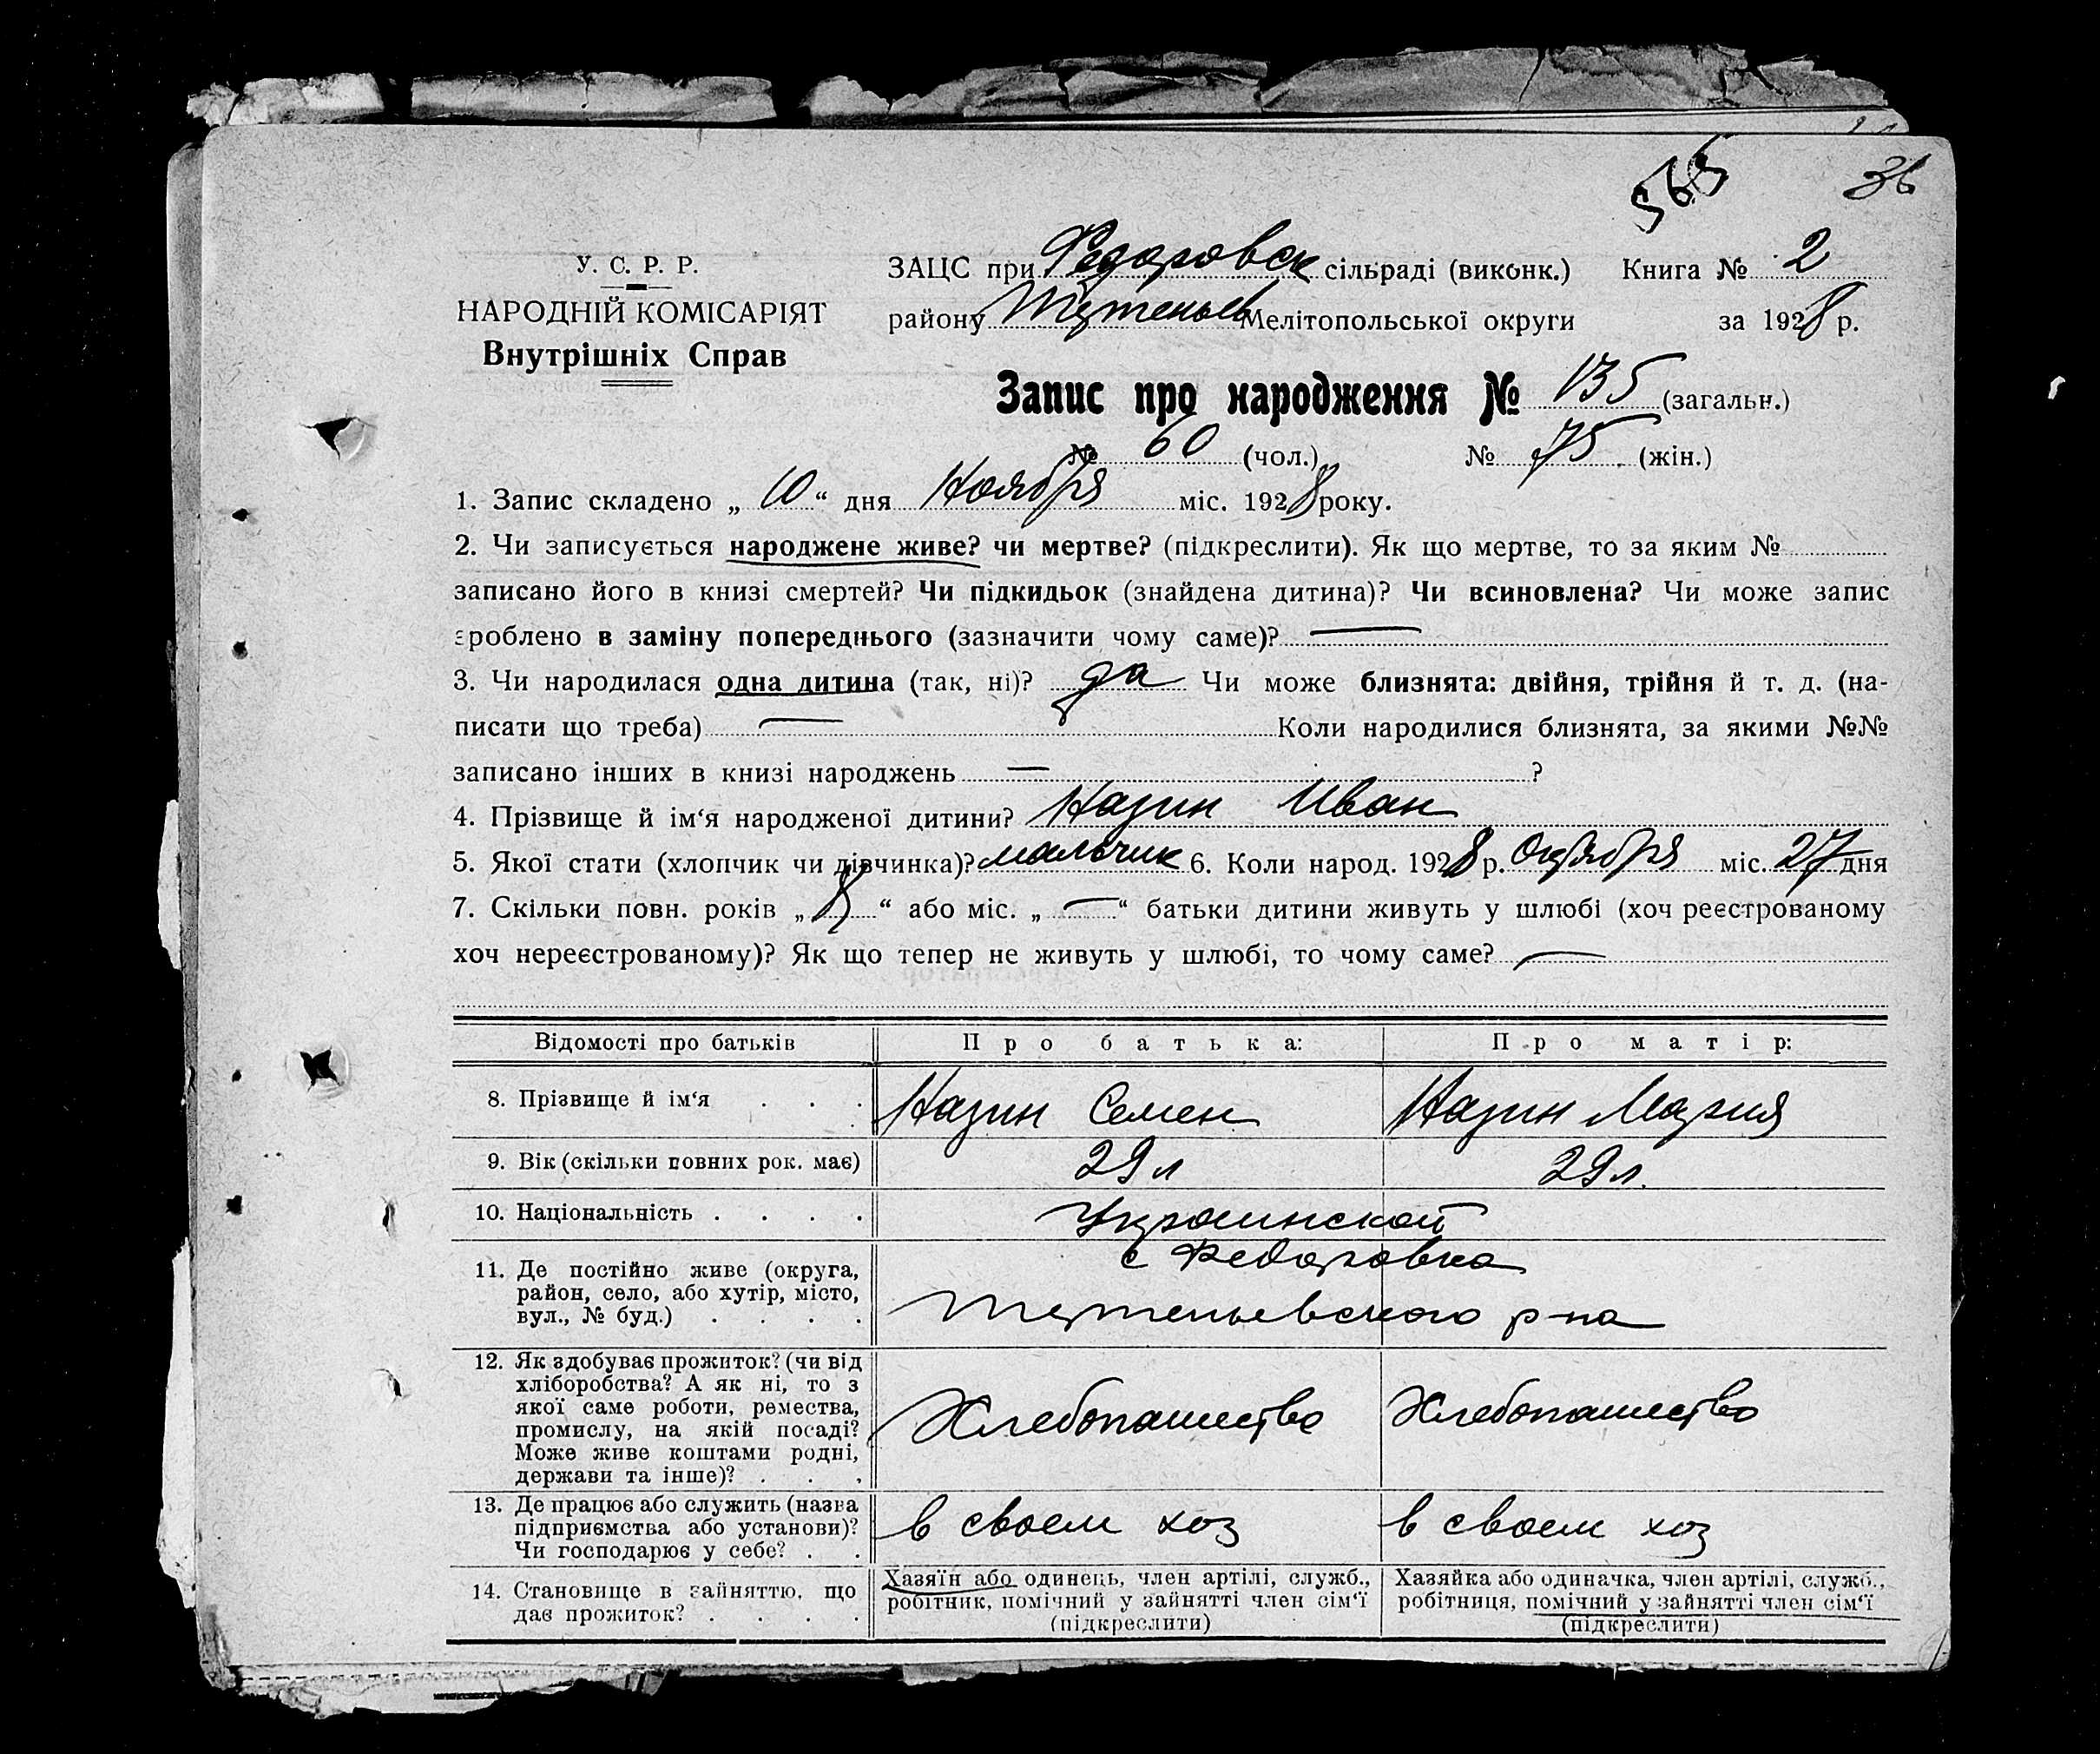 565 36
У. С. Р. Р.
НАРОДНІЙ КОМІСАРІЯТ
Внутрішніх Справ
ЗАЦС при Федоровск сільраді (виконк.) Книга № 2
району Мелітопольської округи за 1928 р.
Запис про народження № 135 (загальн.)
№ 60 (чол.) № 75 (жін.)
1. Запис складено „ 10 “ дня Ноября міс. 1928 року.
2. Чи записується народжене живе? чи мертве? (підкреслити). Як що мертве, то за яким №
записано його в книзі смертей? Чи підкидьок (знайдена дитина)? Чи всиновлена? Чи може запис
зроблено в заміну попереднього (зазначити чому саме)? —
3. Чи народилася одна дитина (так, ні)? да Чи може близнята: двійня, трійня й т. д. (на-
писати що треба) — Коли народилися близнята, за якими №№
записано інших в книзі народжень — ?
4. Прізвище й ім‘я народженої дитини? Назин Иван
5. Якої стати (хлопчик чи дівчинка)? мальчик 6. Коли народ. 1928 р. Октября міс. 27 дня
7. Скільки повн. років „ 8 “ або міс. „ — “ батьки дитини живуть у шлюбі (хоч реєстрованому
хоч нереєстрованому)? Як що тепер не живуть у шлюбі, то чому саме? —
Відомості про батьків Про батька: Про матір:
8. Прізвище й ім‘я . . . Назин Семен Назин Мария
9. Вік (скільки повних рок. має) 29 л 29 л.
10. Національність . . . . Украинской
11. Де постійно живе (округа,
район, село, або хутір, місто,
вул., № буд.) . . . .
с Федоровка
р-на
12. Як здобуває прожиток? (чи від
хліборобства? А як ні, то з
якої саме роботи, ремества,
промислу, на якій посаді?
Може живе коштами родні,
держави та інше)? . . .
Хлебопашество Хлебопашество
13. Де працює або служить (назва
підприємства або установи)?
Чи господарює у себе? . .
в своем хоз в своем хоз
14. Становище в зайняттю, що
дає прожиток? . . . .
Хазяїн або одинець, член артілі, служб.,
робітник, помічний у зайнятті член сім‘ї
(підкреслити)
Хазяйка або одиначка, член артілі, служб.,
робітниця, помічний у зайнятті член сім‘ї
(підкреслити)